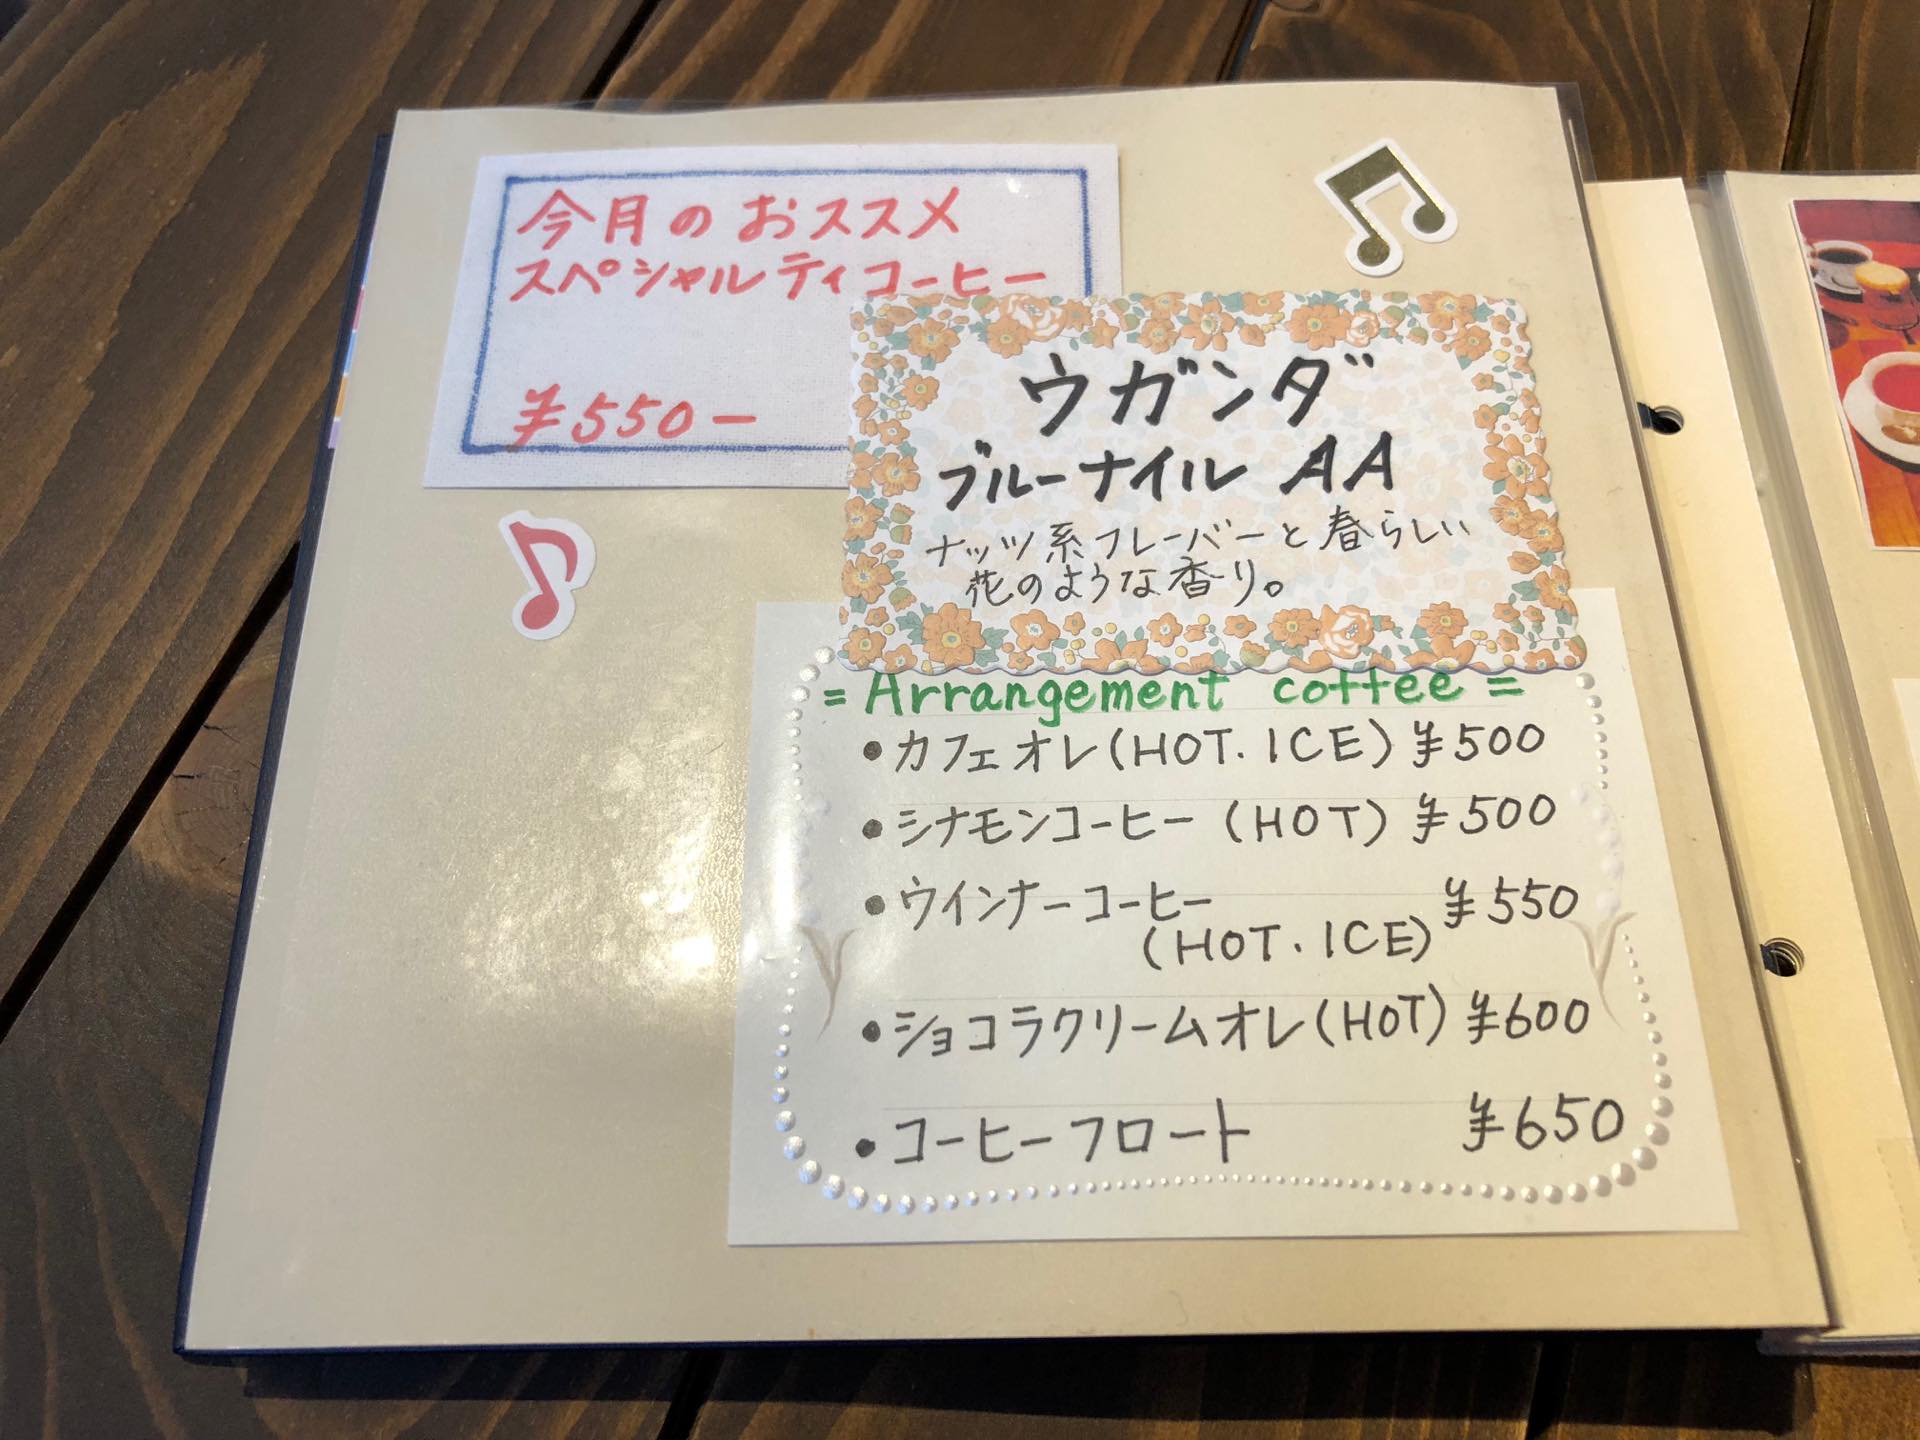 今月のおススメ
スペシャルティコーヒー
¥550-
ウガンダ
ブルーナイル AA
ナッツ系フレーバーと春らしい
花のような香り。
= Arrangement coffee =
•カフェオレ(HOT.ICE) ¥500
•シナモンコーヒー (HOT) ¥500
•ウインナーコーヒー ¥550
(HOT.ICE)
•ショコラクリームオレ(HOT) ¥600
•コーヒーフロート ¥650